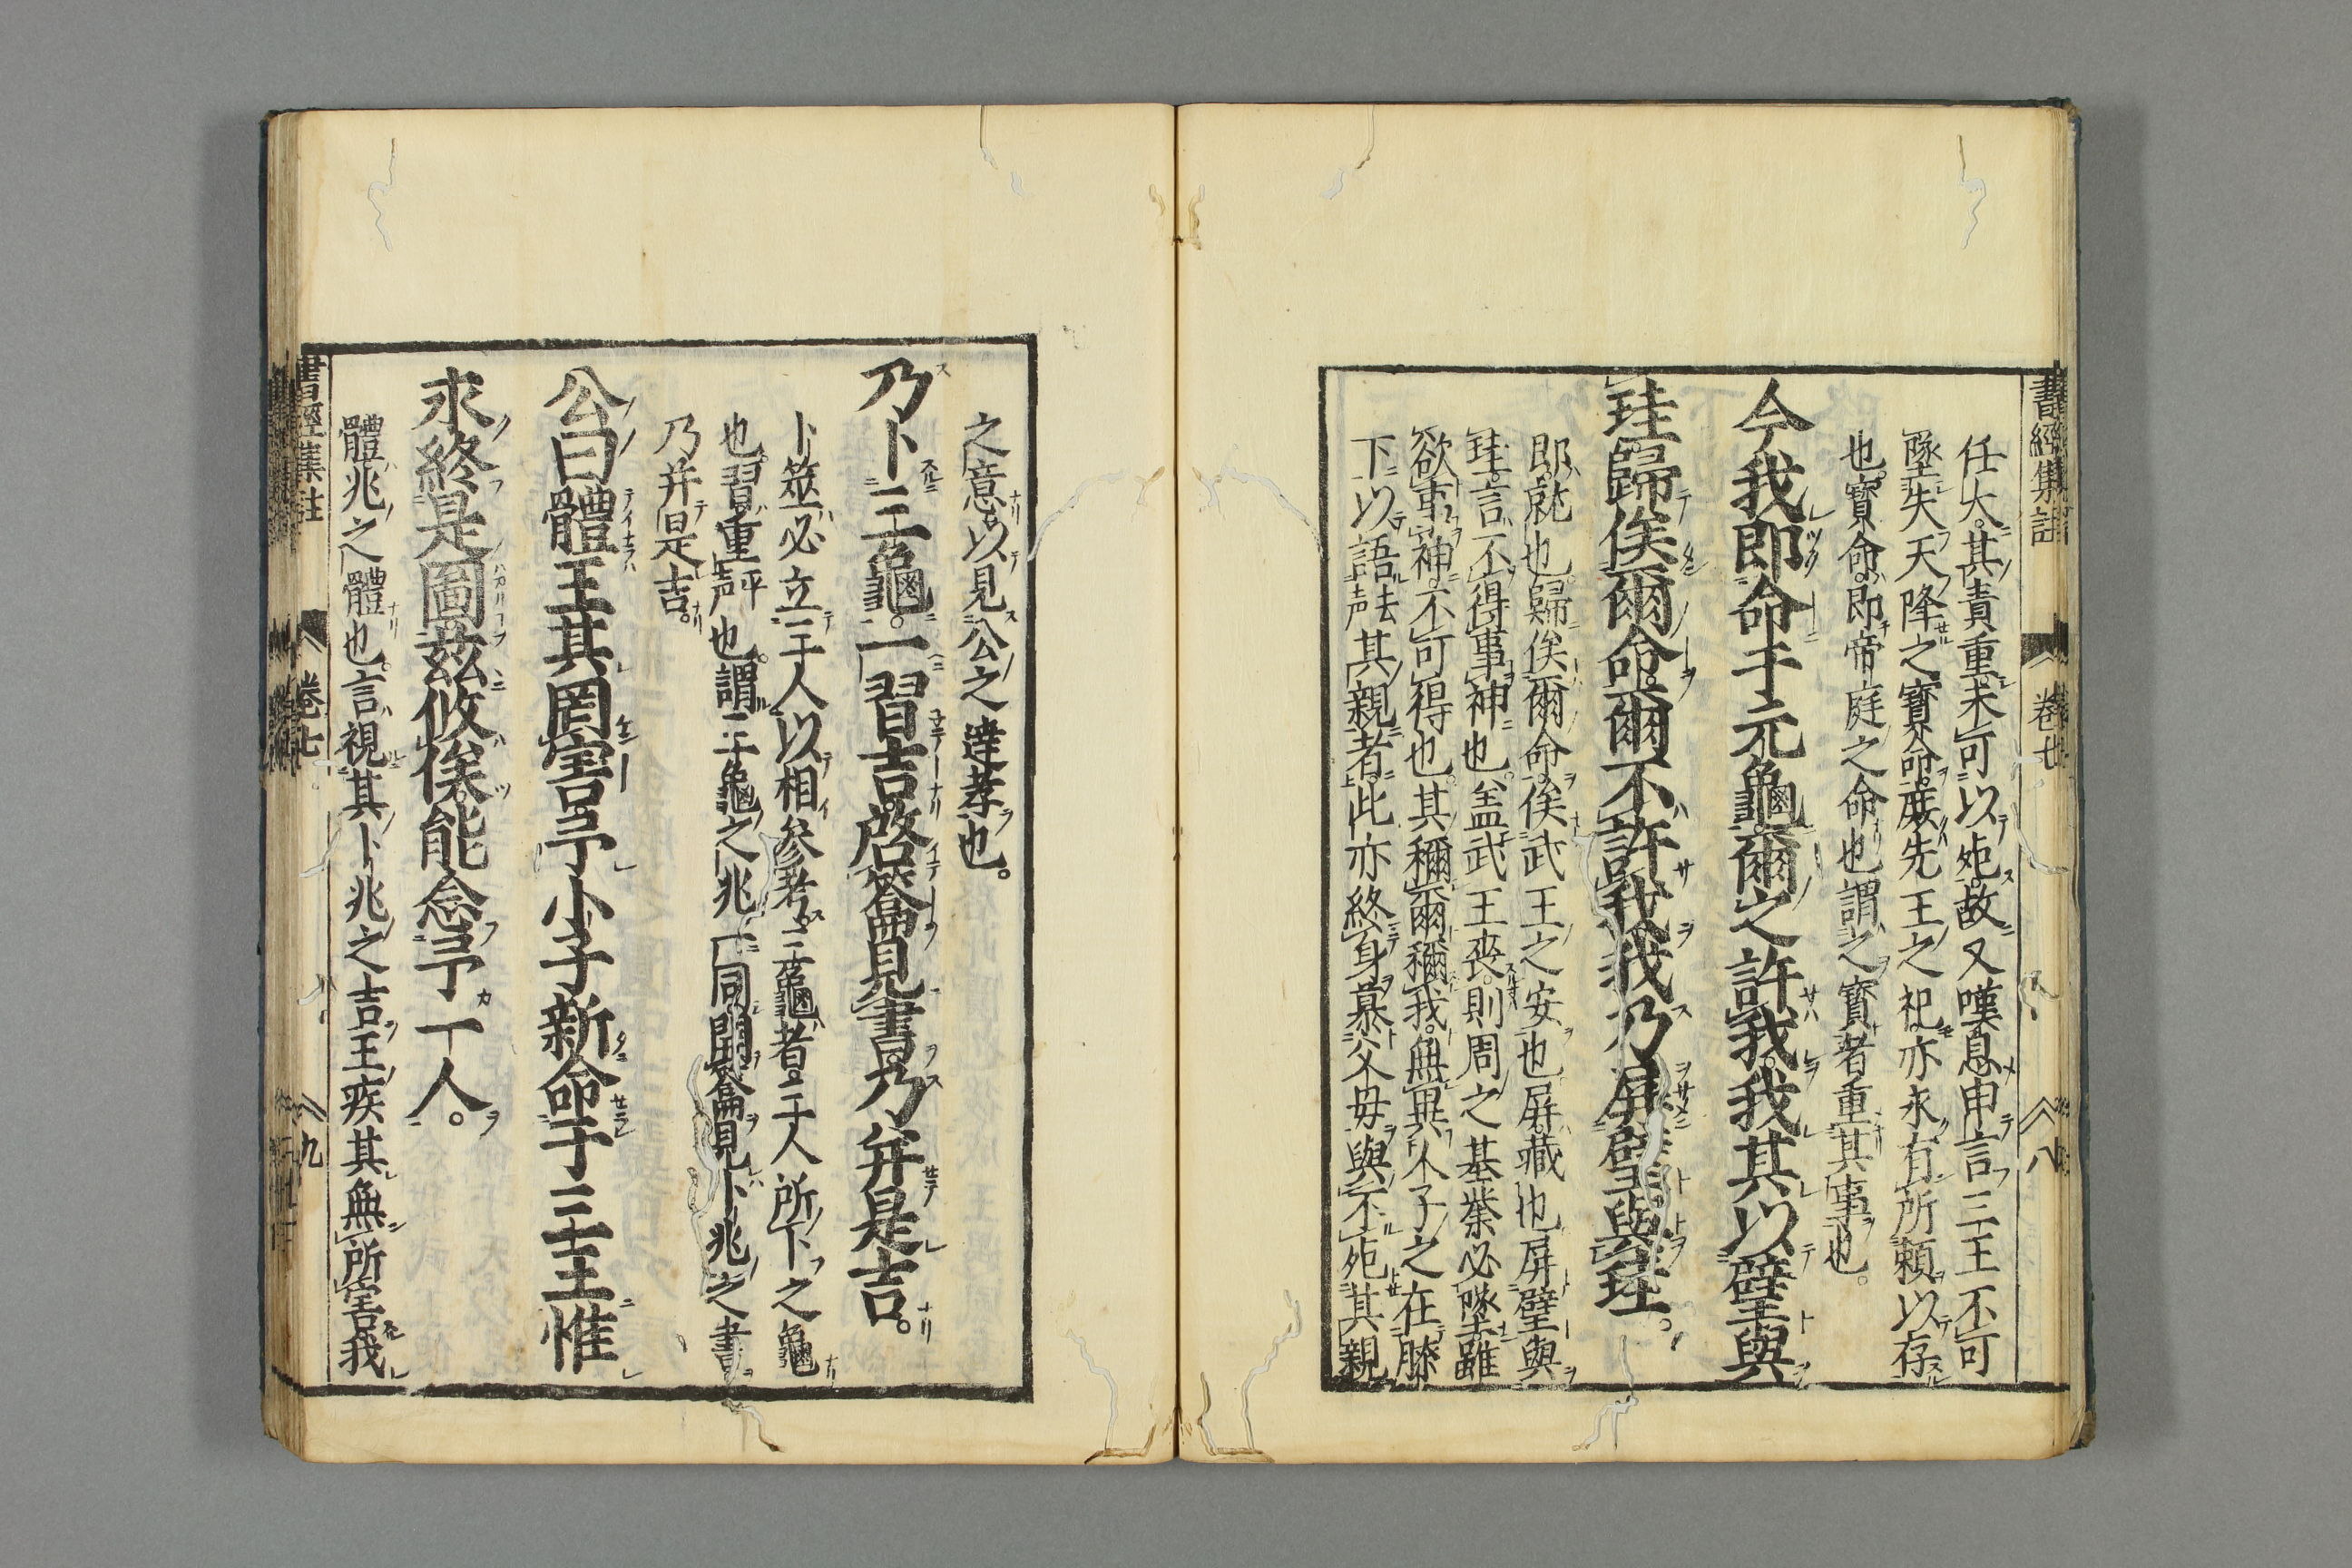 書經集註 卷七 八
任大其責重未可以死故又嘆息申言三王不可
墜失天降之寶命庶先王之祀亦永有所賴以存
也寶命即帝庭之命也謂之寶者重其事也。
今我即命于元龜爾之許我我其以璧與
珪歸俟爾命爾不許我我乃屏璧與珪。
即就也歸俟爾命俟武王之安也屏藏也屏璧與
珪言不得事神也盖武王喪則周之基業必墜雖
欲事神不可得也其稱爾稱我無異人子之在膝
下以語去声其親者此亦終身慕父母與不死其親
之意以見公之達孝也。
乃卜三龜。一習吉啓籥見書乃并是吉。
卜筮必立三人以相參考三龜者三人所卜之龜
也習重平声也。謂三龜之兆一同開籥見卜兆之書
乃并是吉。
公曰體王其罔害予小子新命于三王惟
永終是圖茲攸俟能念予一人。
體兆之體也。言視其卜兆之吉王疾其無所害我
書經集註 卷七 九